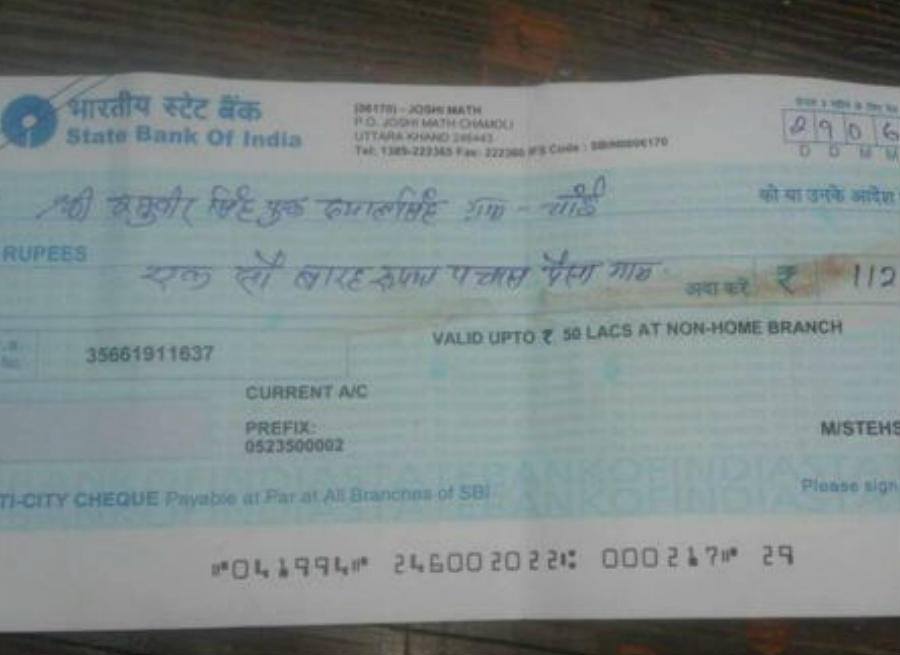 भारतीय स्टेट बैंक
State Bank Of India
(06170) - JOSHI MATH
P.O. JOSHI MATH CHAMOLI
UTTARA KHAND 246443
Tel: 1389-222365 Fax: 222365 IFS Code : SBIN0006170
2906
D D M M
श्री रघुवीर सिंह पुत्र सिंह ग्राम -
को या उनके आदेश
RUPEES
एक सौ बारह रुपए पचास पैसा मात्र
अदा करें ₹ 112
35661911637
VALID UPTO ₹ 50 LACS AT NON-HOME BRANCH
CURRENT A/C
PREFIX:
0523500002
M/STEHS
TI-CITY CHEQUE Payable at Par at All Branches of SBI
Please sign
⑈041994⑈ 246002022⑆ 000217⑈ 29